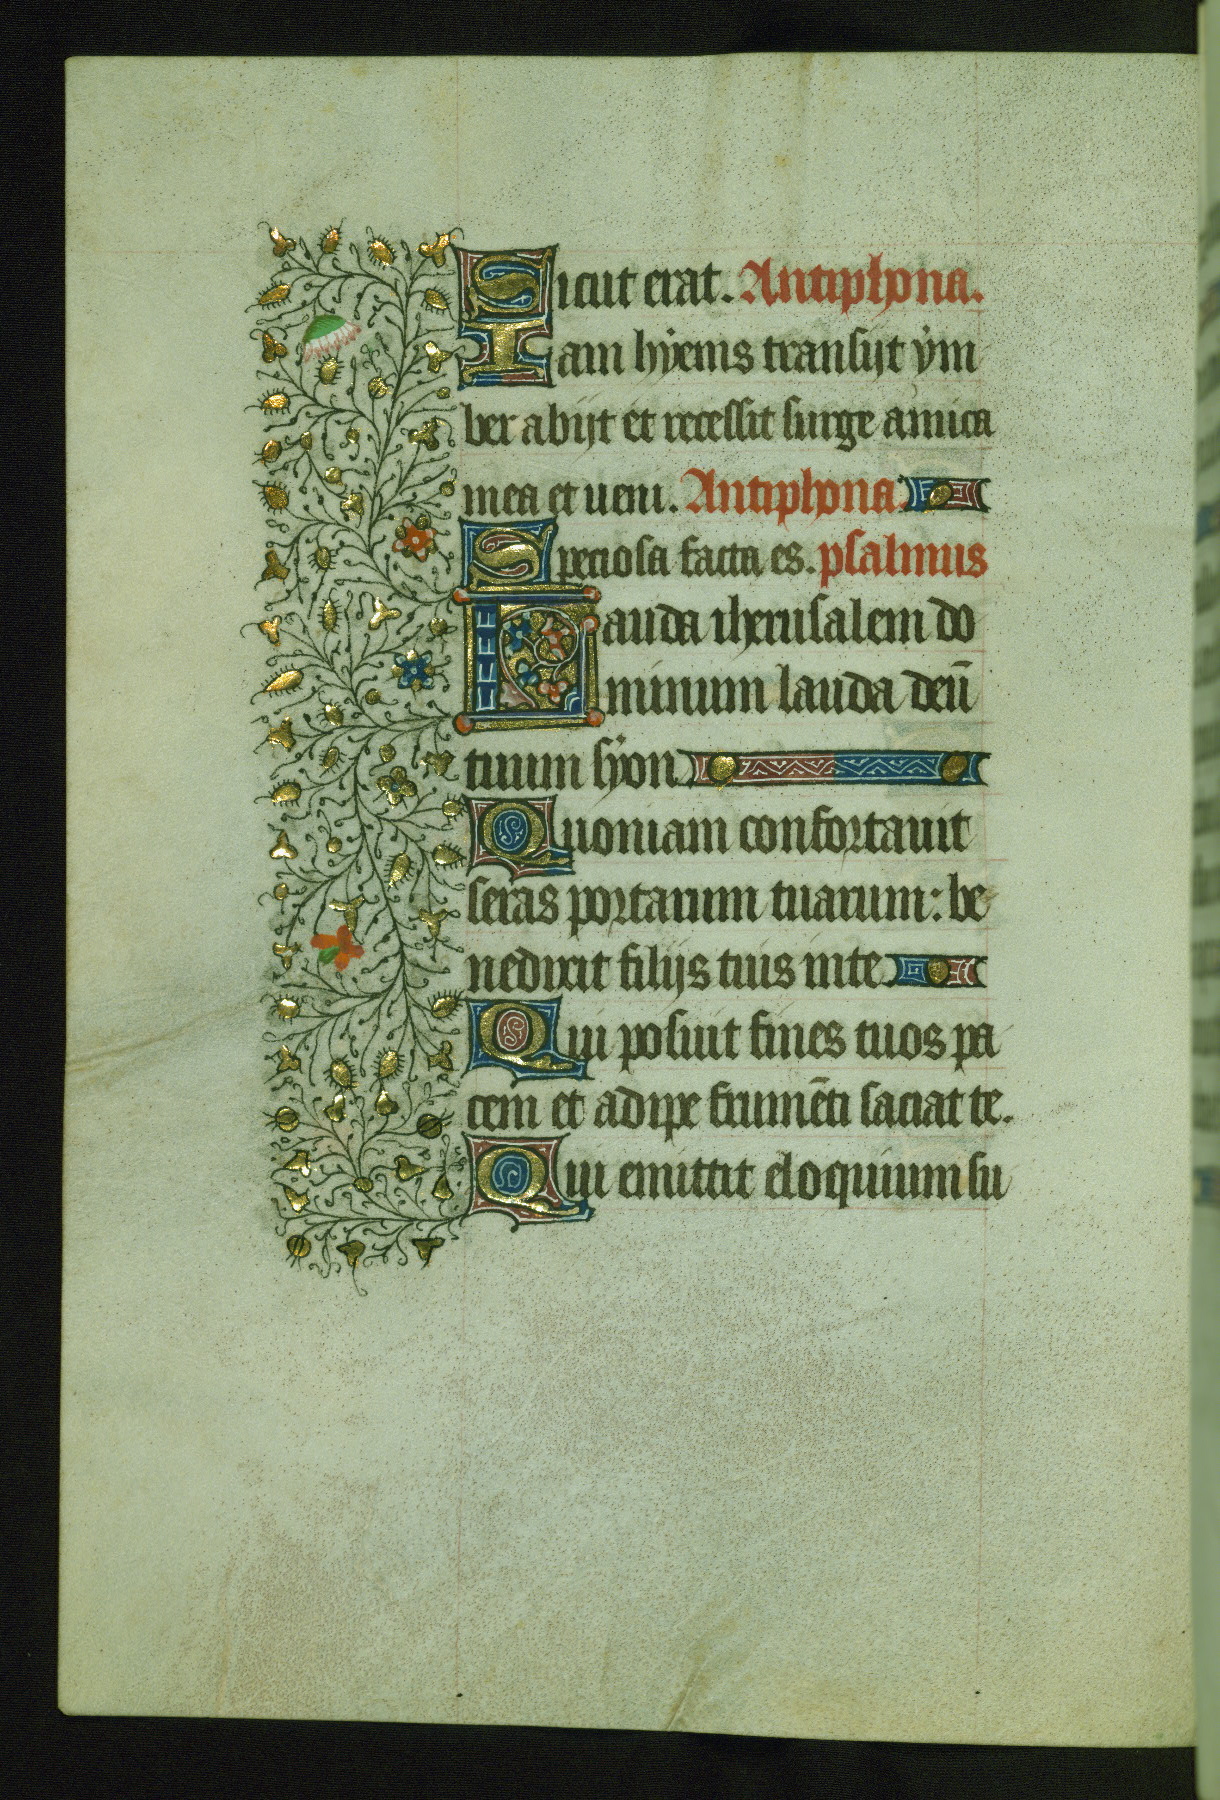 Sicut erat. Antiphona.
Iam hẏems transijt ẏm
ber abijt et recessit surge amica
mea et ueni. Antiphona
Speciosa facta es. psalmus
Lauda iherusalem do
minum lauda deū
tuum sẏon
Quoniam confortauit
seras portarum tuarum: be
nedixit filijs tuis in te
Qui posuit fines tuos pa
cem et adipe frumēti saciat te.
Qui emittit eloquium su